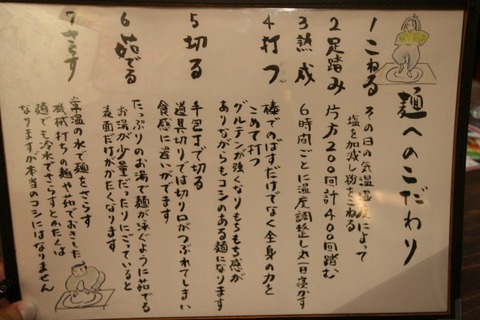 麺へのこだわり
1 こねる
その日の気温湿度によって
塩を加減し粉をこねる
2 足踏み
片方200回計400回踏む
3 熟成
6時間ごとに温度調整し丸一日寝かす
4 打つ
棒でのばすだけでなく全身の力を
こめて打つ
グルテンが強くなりもちもち感が
ありながらもコシのある麺になります
5 切る
手包丁で切る
道具切りでは切り口がつぶれてしまい
食感に違いがでます
6 茹でる
たっぷりのお湯で麺が泳ぐように茹でる
お湯が少量だったりにごっていると
表面だけがかたくなります
7 さらす
常温の水で麺をさらす
機械打ちの麺や茹でおきした
麺でも冷水でさらすとかたくは
なりますが本当のコシにはなりません